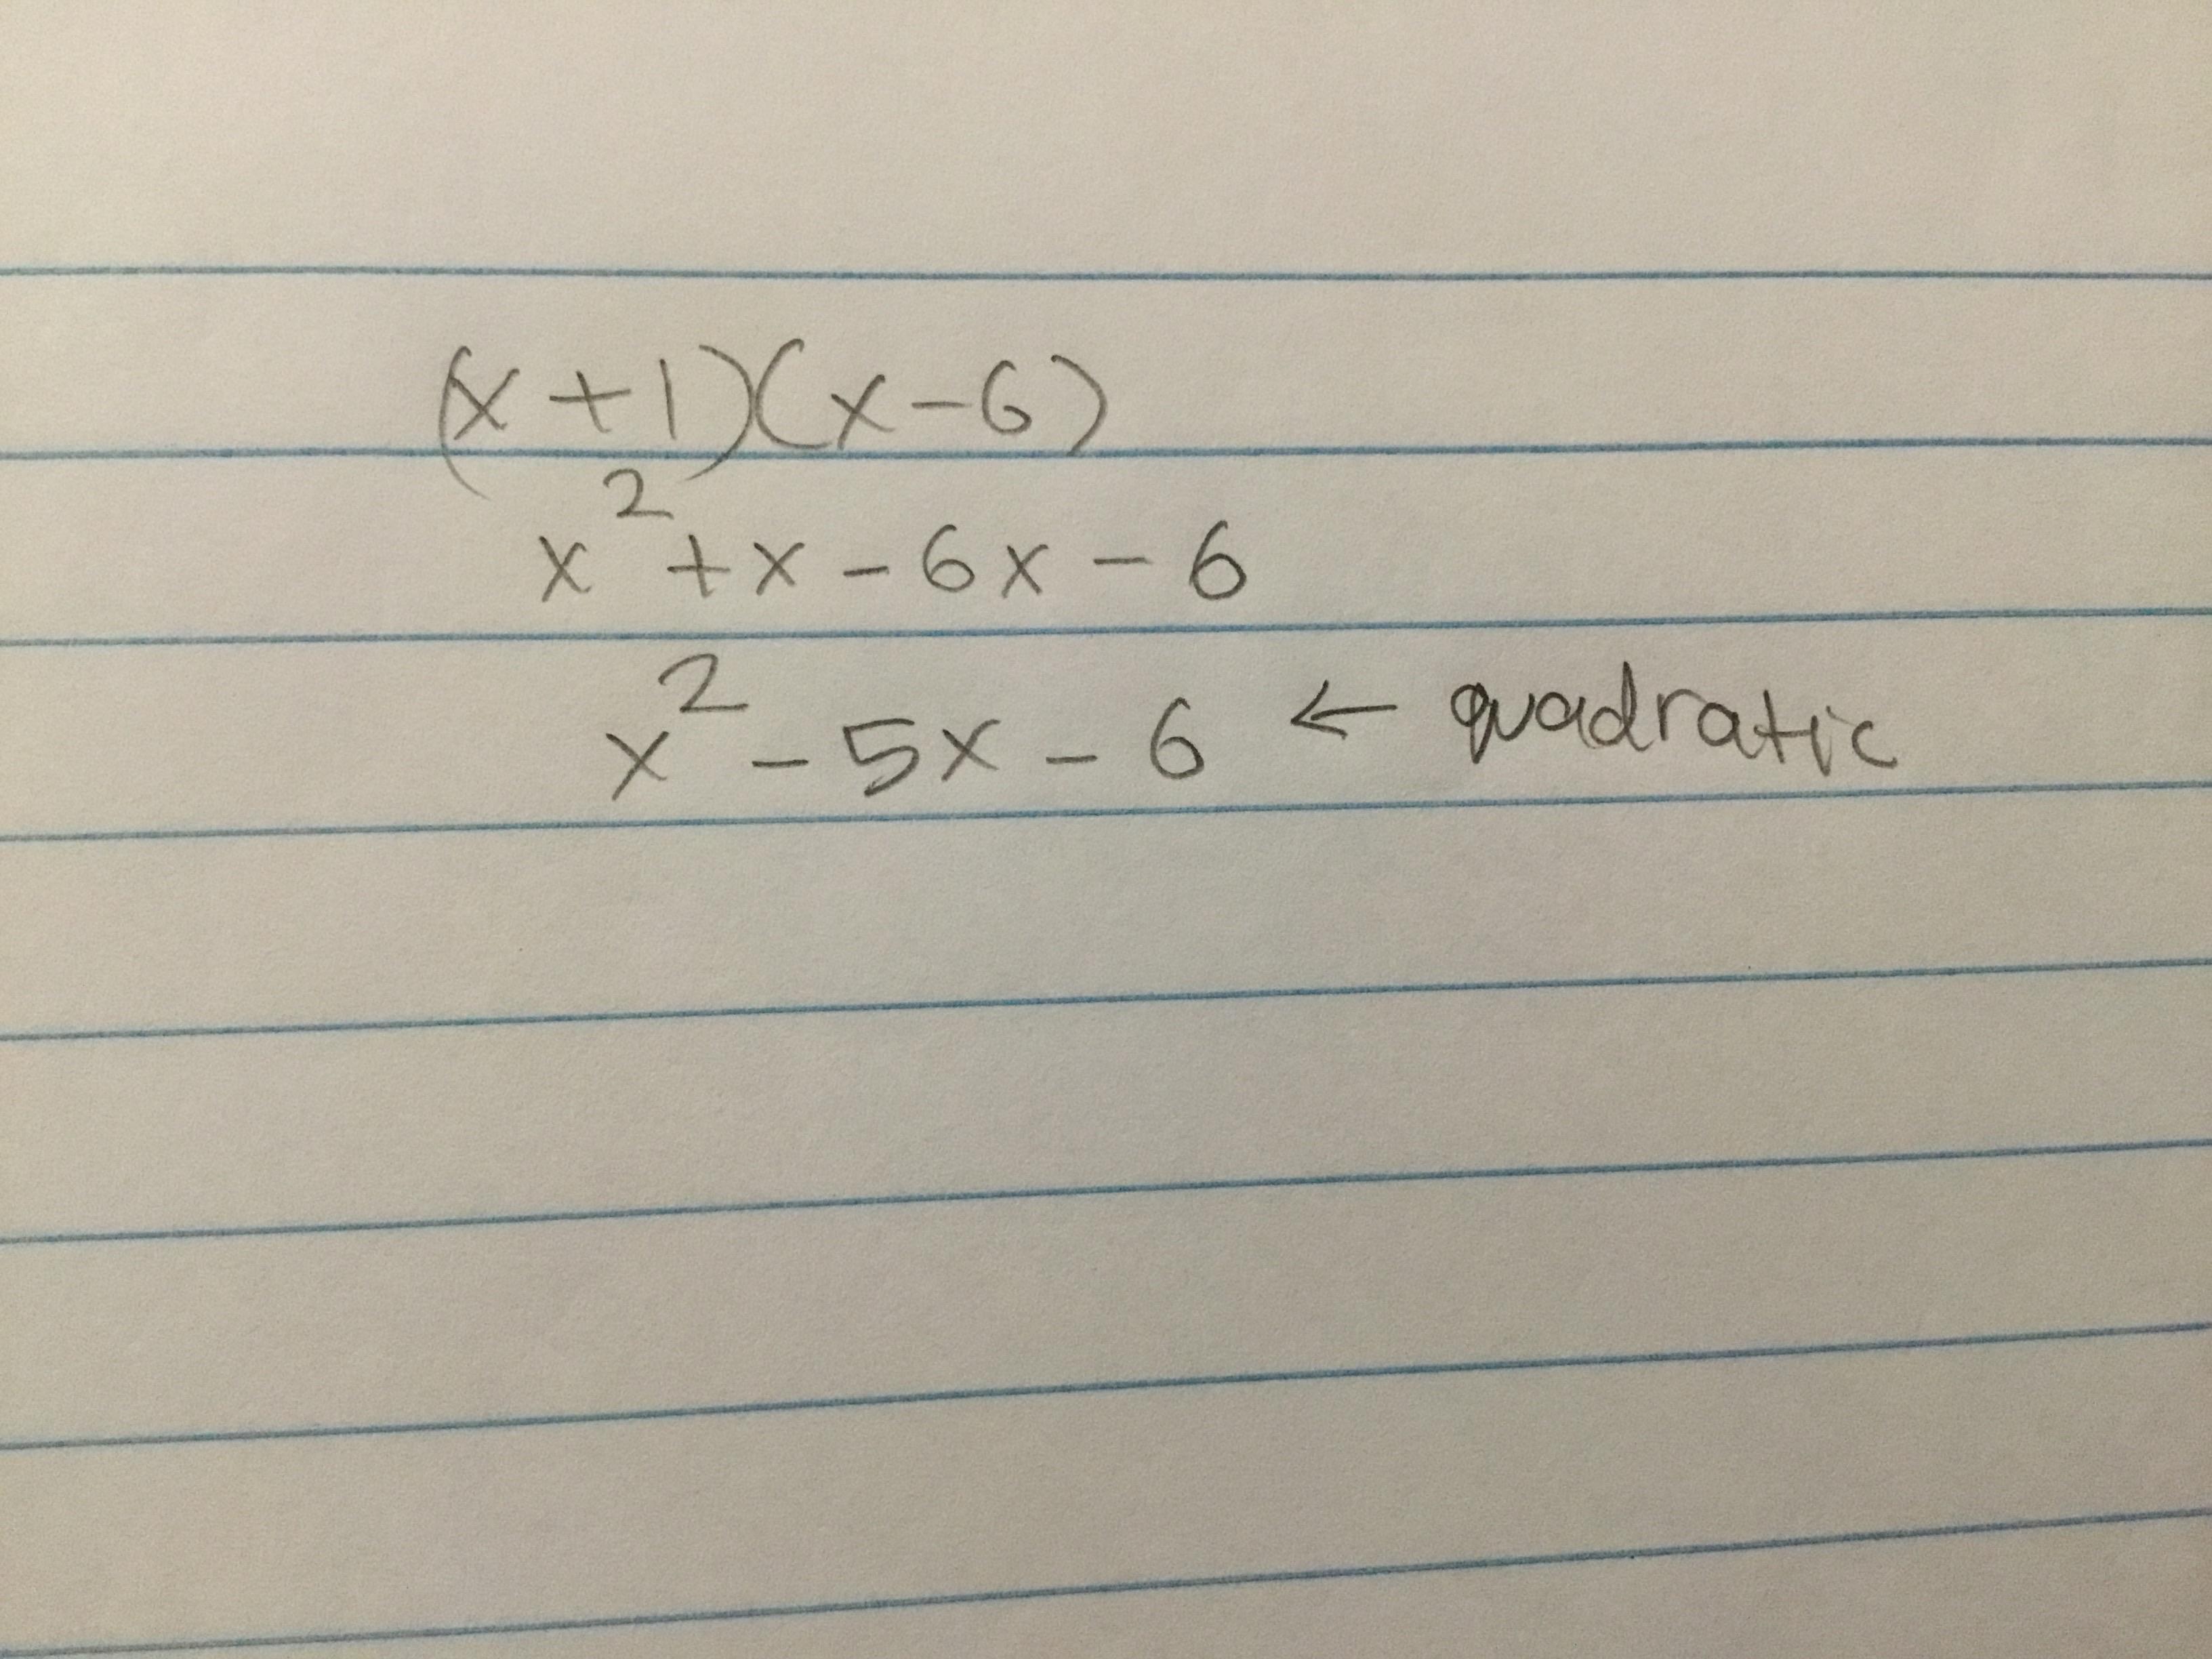 (x+1)(x-6)
x² + x - 6x - 6
x² - 5x - 6 ← quadratic